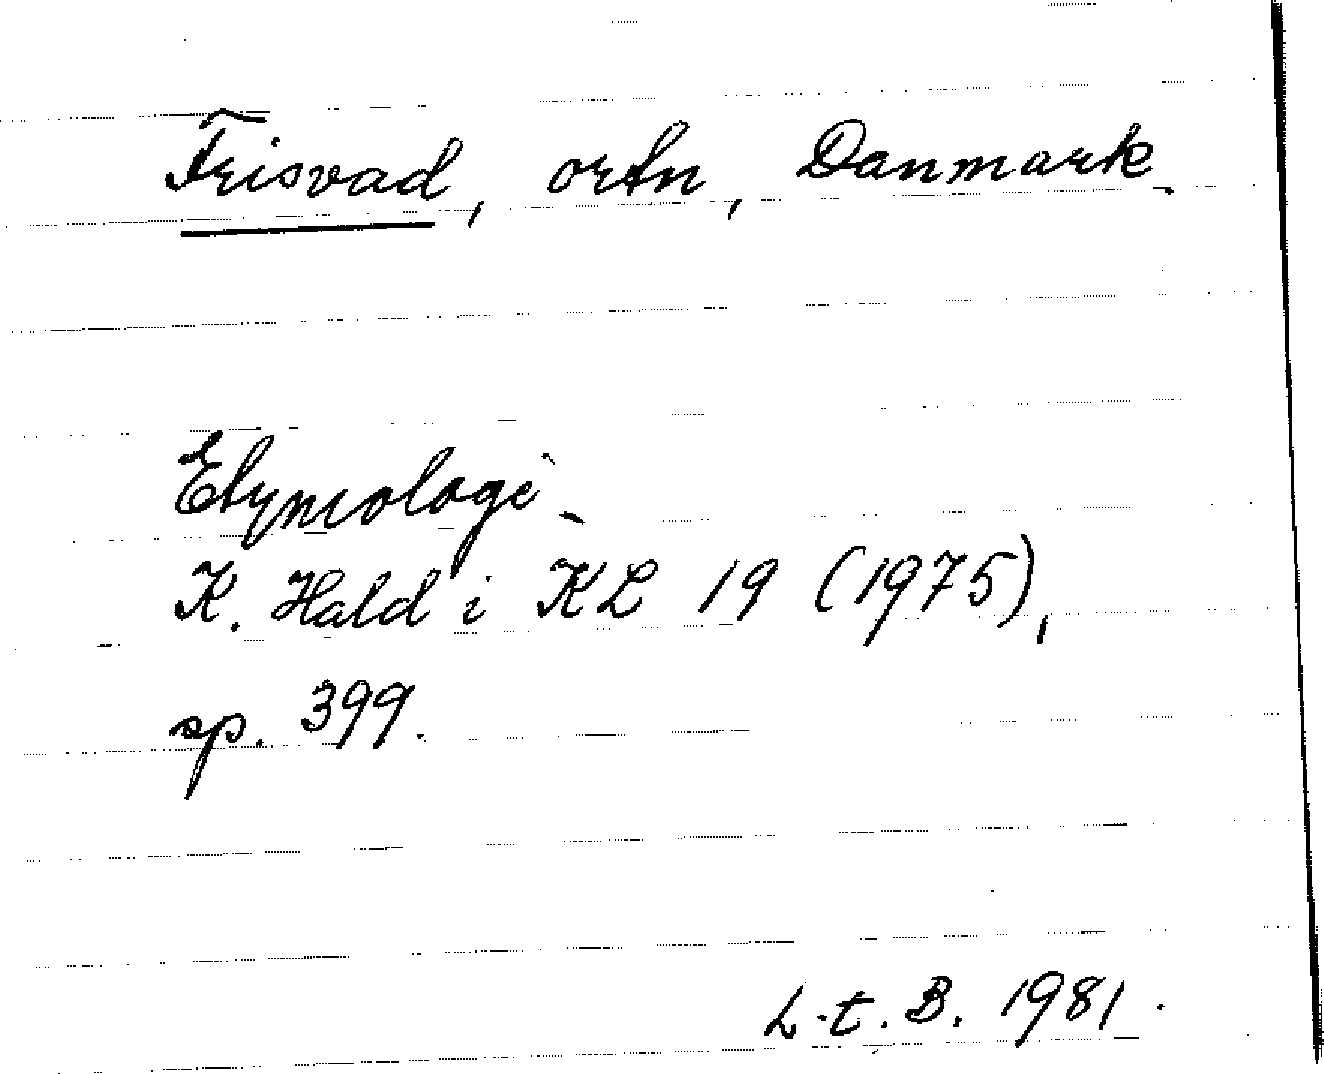 Frisvad, ortn, Danmark.
Etymologi.
K. Hald i KL 19 (1975),
sp. 399.
L.t.B. 1981.